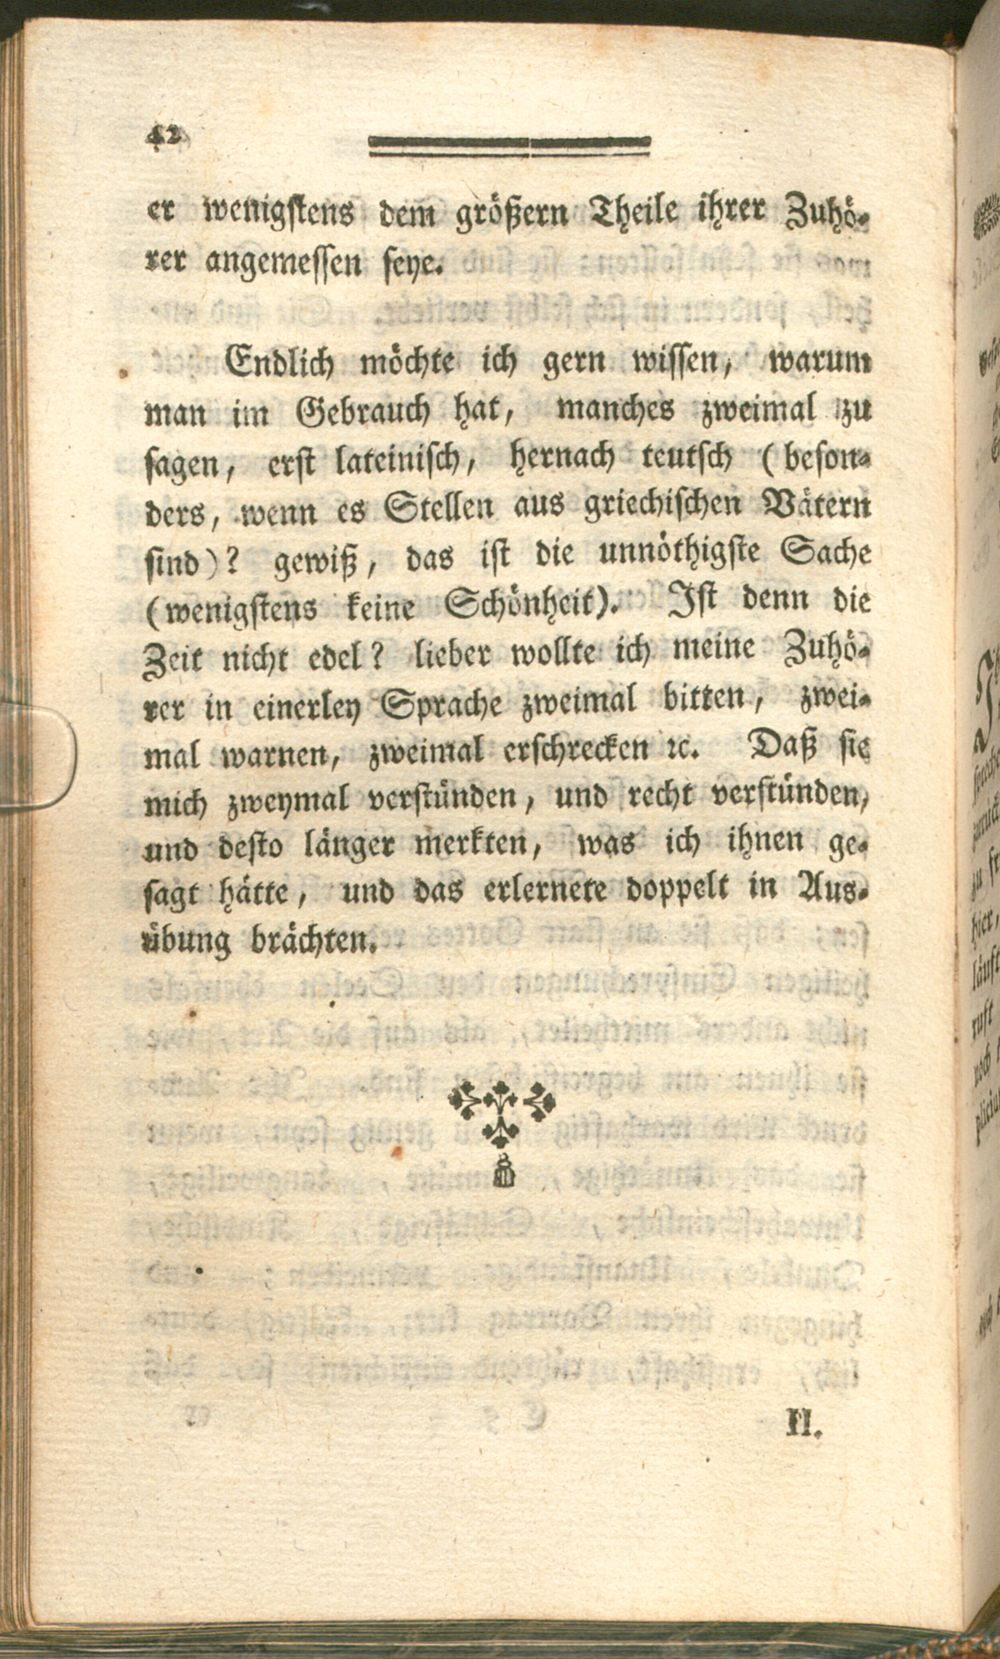 42
er wenigstens dem größern Theile ihrer Zuhö-
rer angemessen seye.
Endlich möchte ich gern wissen, warum
man im Gebrauch hat, manches zweimal zu
sagen, erst lateinisch, hernach teutsch (beson-
ders, wenn es Stellen aus griechischen Vätern
sind)? gewiß, das ist die unnöthigste Sache
(wenigstens keine Schönheit). Ist denn die
Zeit nicht edel? lieber wollte ich meine Zuhö-
rer in einerley Sprache zweimal bitten, zwei-
mal warnen, zweimal erschrecken ꝛc. Daß sie
mich zweymal verstünden, und recht verstünden,
und desto länger merkten, was ich ihnen ge-
sagt hätte, und das erlernete doppelt in Aus-
übung brächten.
II.